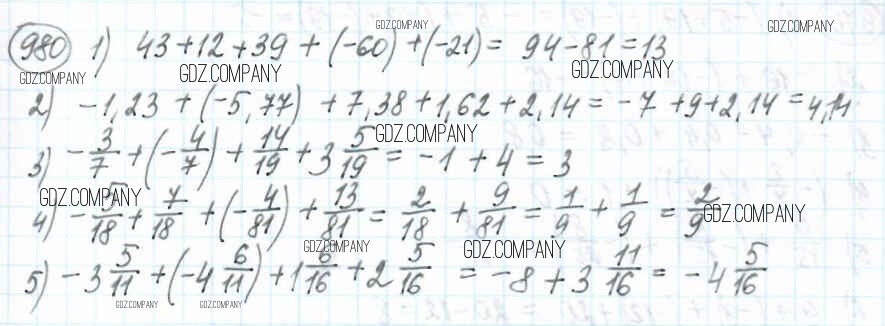 GDZ.COMPANY GDZ.COMPANY
980 1) 43 + 12 + 39 + (-60) + (-21) = 94 - 81 = 13
GDZ.COMPANY GDZ.COMPANY GDZ.COMPANY
2) -1,23 + (-5,77) + 7,38 + 1,62 + 2,14 = -7 + 9 + 2,14 = 4,14
GDZ.COMPANY
3) -3/7 + (-4/7) + 14/19 + 3 5/19 = -1 + 4 = 3
GDZ.COMPANY GDZ.COMPANY
4) -5/18 + 7/18 + (-4/81) + 13/81 = 2/18 + 9/81 = 1/9 + 1/9 = 2/9
GDZ.COMPANY GDZ.COMPANY
5) -3 5/11 + (-4 6/11) + 1 6/16 + 2 5/16 = -8 + 3 11/16 = -4 5/16
GDZ.COMPANY GDZ.COMPANY